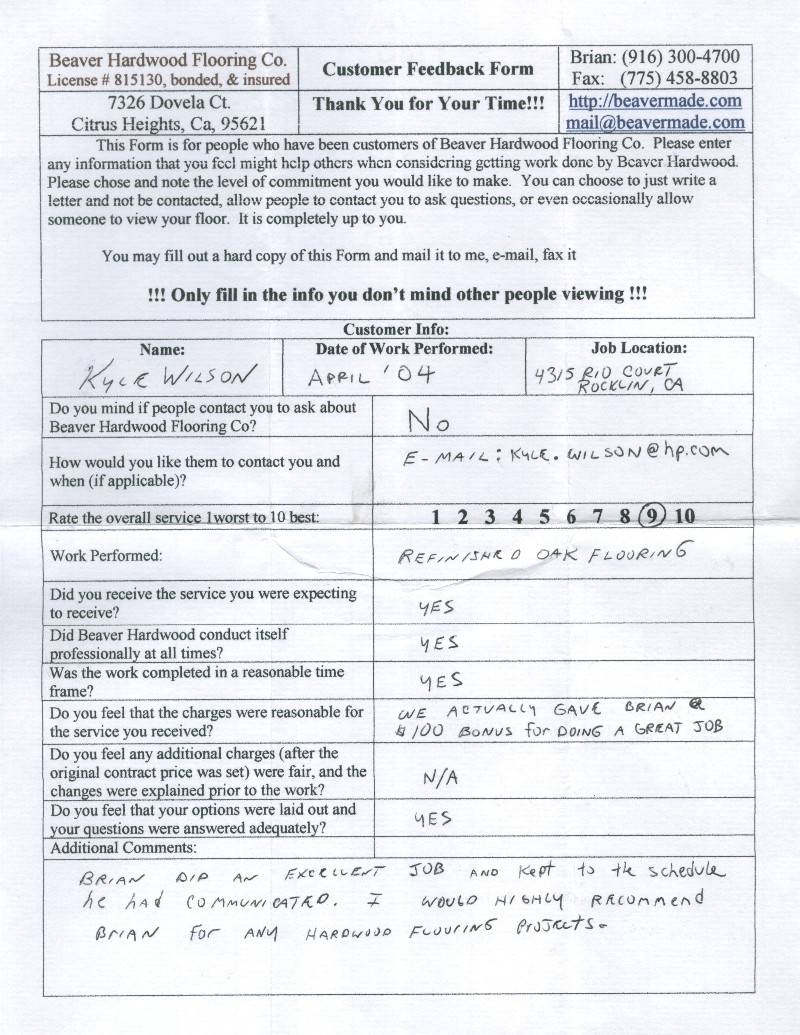 Beaver Hardwood Flooring Co.
License # 815130, bonded, & insured
Customer Feedback Form
Brian: (916) 300-4700
Fax: (775) 458-8803
7326 Dovela Ct.
Citrus Heights, Ca, 95621
Thank You for Your Time!!!
http://beavermade.com
mail@beavermade.com
This Form is for people who have been customers of Beaver Hardwood Flooring Co. Please enter
any information that you feel might help others when considering getting work done by Beaver Hardwood.
Please chose and note the level of commitment you would like to make. You can choose to just write a
letter and not be contacted, allow people to contact you to ask questions, or even occasionally allow
someone to view your floor. It is completely up to you.
You may fill out a hard copy of this Form and mail it to me, e-mail, fax it
!!! Only fill in the info you don't mind other people viewing !!!
Customer Info:
Name:
KYLE WILSON
Date of Work Performed:
APRIL '04
Job Location:
4315 RIO COURT
ROCKLIN, CA
Do you mind if people contact you to ask about
Beaver Hardwood Flooring Co?
No
How would you like them to contact you and
when (if applicable)?
E-MAIL: KYLE.WILSON@hp.com
Rate the overall service 1worst to 10 best:
1 2 3 4 5 6 7 8 9 10
Work Performed:
REFINISHED OAK FLOORING
Did you receive the service you were expecting
to receive?
YES
Did Beaver Hardwood conduct itself
professionally at all times?
YES
Was the work completed in a reasonable time
frame?
YES
Do you feel that the charges were reasonable for
the service you received?
WE ACTUALLY GAVE BRIAN a
$100 BONUS for DOING A GREAT JOB
Do you feel any additional charges (after the
original contract price was set) were fair, and the
changes were explained prior to the work?
N/A
Do you feel that your options were laid out and
your questions were answered adequately?
YES
Additional Comments:
BRIAN DID AN EXCELLENT JOB AND kept to the schedule
he had COMMUNICATED. I WOULD HIGHLY RECOMMEND
BRIAN for ANY HARDWOOD FLOORING PROJECTS.